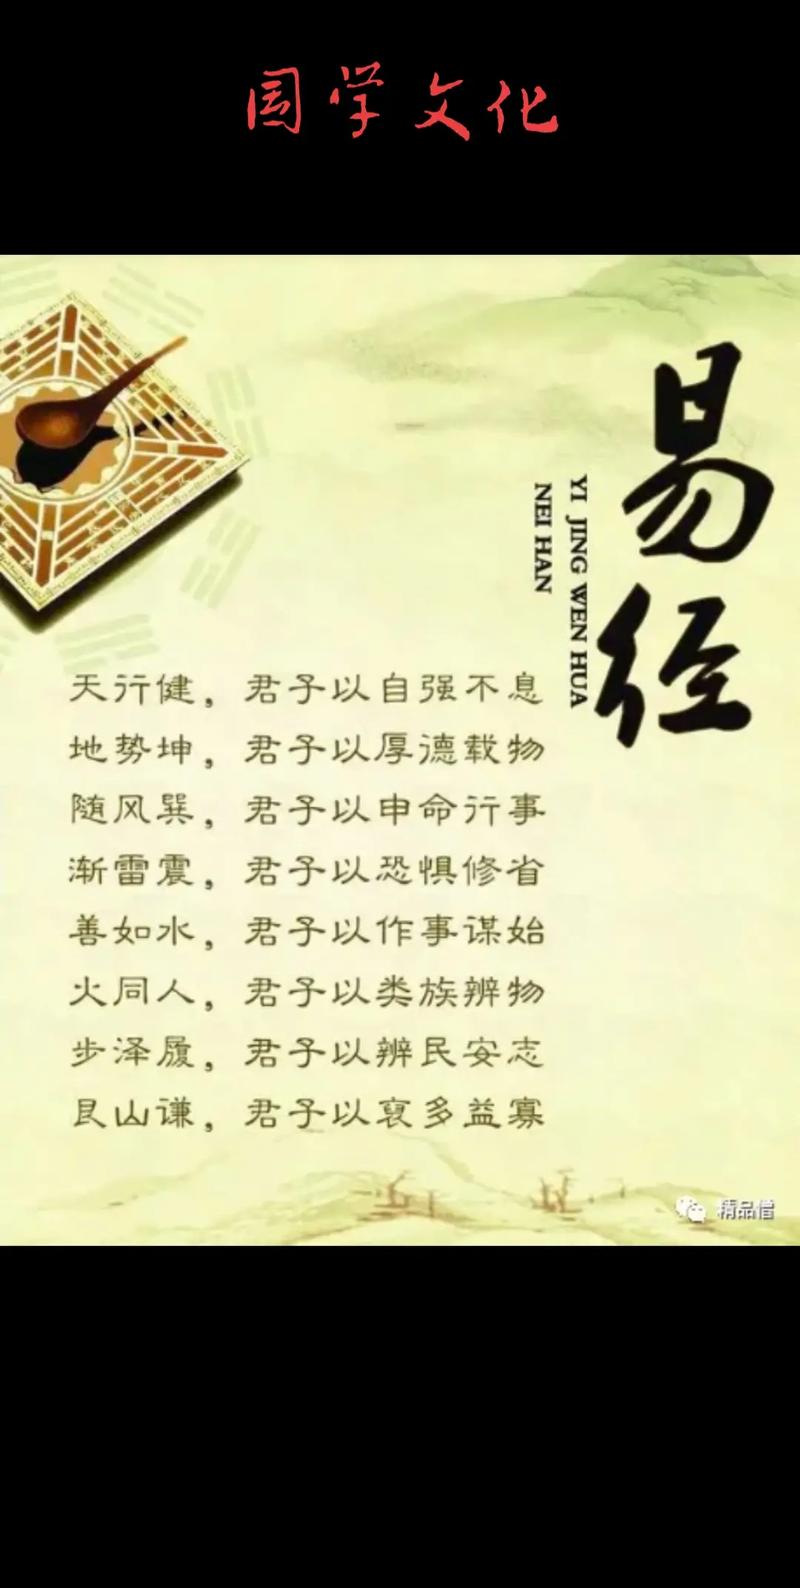 国学文化
易经
YI JING WEN HUA
NEI HAN
天行健，君子以自强不息
地势坤，君子以厚德载物
随风巽，君子以申命行事
渐雷震，君子以恐惧修省
善如水，君子以作事谋始
火同人，君子以类族辨物
步泽履，君子以辨民安志
艮山谦，君子以裒多益寡
精品僧